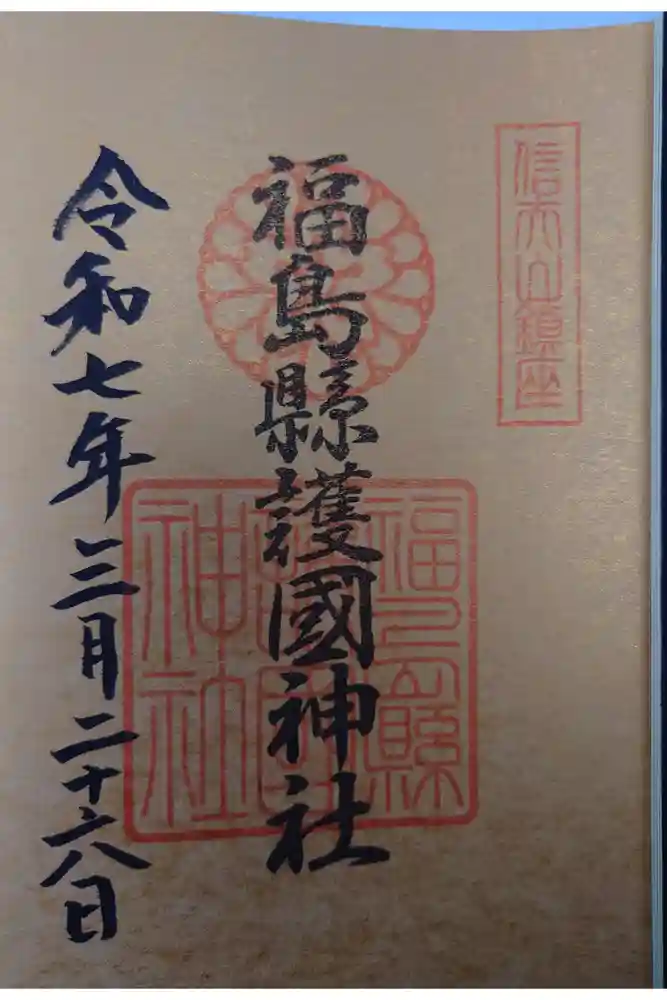 信夫山鎮座
福島縣護國神社
福島縣
護國
神社
令和七年三月二十六日